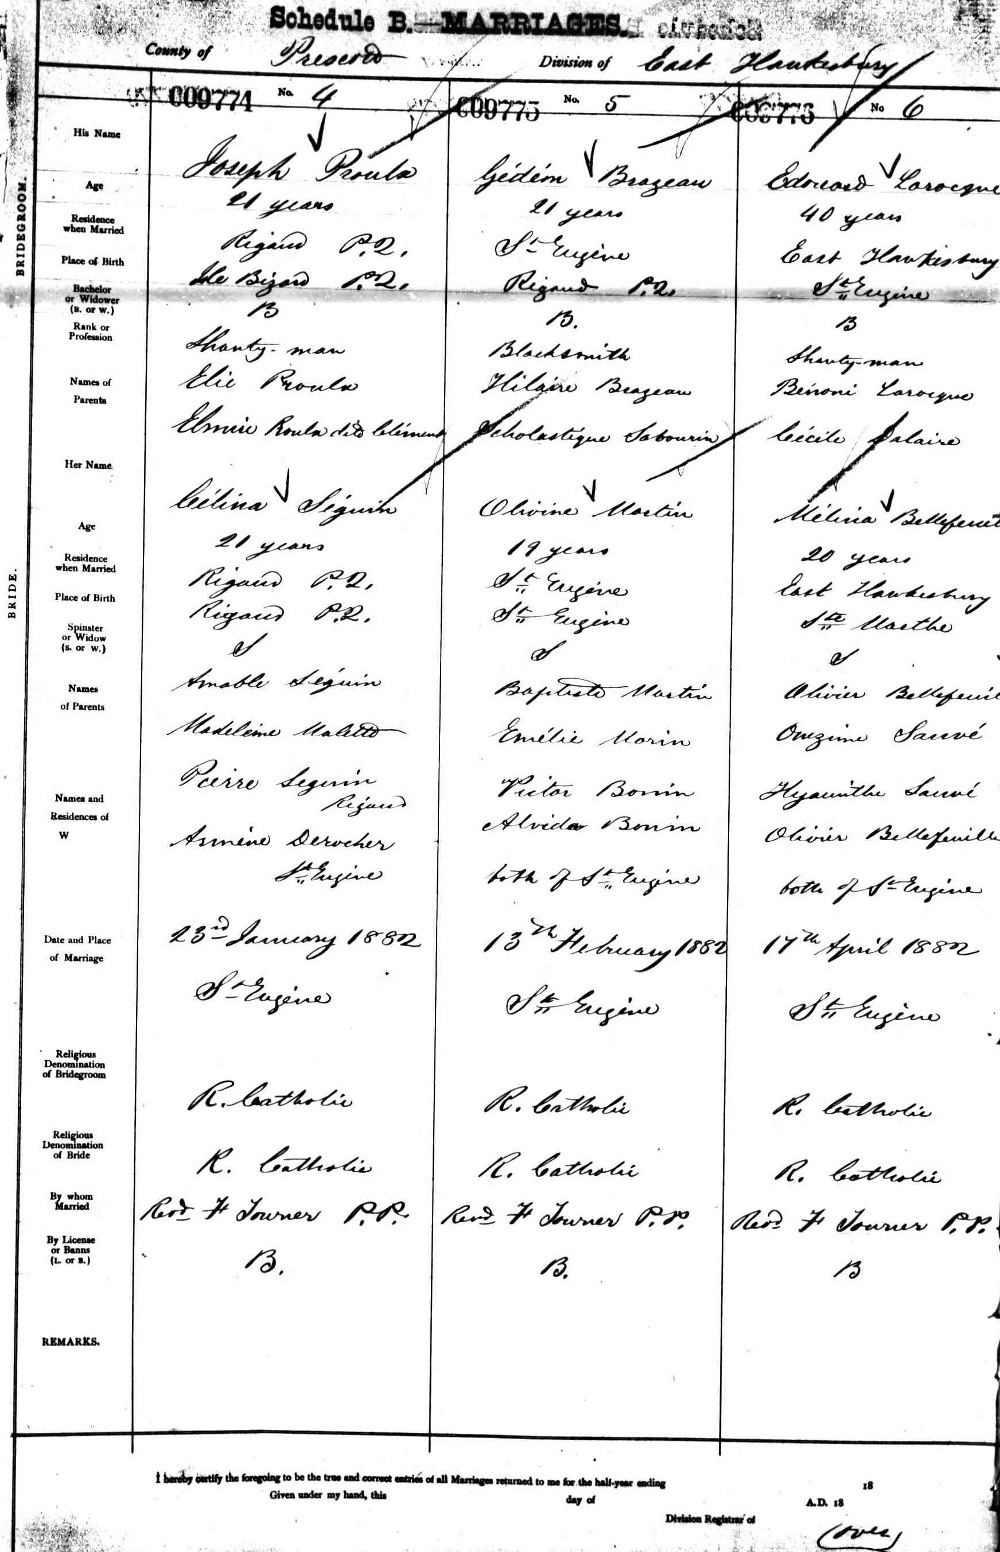 Schedule B.—MARRIAGES.
County of Prescott Division of East Hawkesbury
009774 No. 4 009775 No. 5 009776 No 6
BRIDEGROOM.
His Name Joseph Proulx Gédéon Brazeau Edouard Larocque
Age 21 years 21 years 40 years
Residence when Married Rigaud P.Q. St Eugène East Hawkesbury
Place of Birth Isle Bizard P.Q. Rigaud P.Q. St Eugène
Bachelor or Widower (B. or W.) B B. B
Rank or Profession Shanty-man Blacksmith Shanty-man
Names of Parents Elie Proulx Hilaire Brazeau Bénoni Larocque
Elmire Roula dit Clément Scholastique Sabourin Cécile Salaire
BRIDE.
Her Name Célina Séguin Olivine Martin Mélina Bellefeuil
Age 21 years 19 years 20 years
Residence when Married Rigaud P.Q. St Eugène East Hawkesbury
Place of Birth Rigaud P.Q. St Eugène Ste Marthe
Spinster or Widow (S. or W.) S S S
Names of Parents Amable Séguin Baptiste Martin Olivier Bellefeuil
Madeleine Malette Emélie Morin Onezime Sauvé
Names and Residences of W Pierre Seguin Victor Bonin Hyacinthe Sauvé
Rigaud Alvida Bonin Olivier Bellefeuille
Arméne Derocher
St Eugène both of St Eugène both of St Eugène
Date and Place of Marriage 23rd January 1882 13th February 1882 17th April 1882
St Eugène St Eugène St Eugène
Religious Denomination of Bridegroom R. Catholic R. Catholic R. Catholic
Religious Denomination of Bride R. Catholic R. Catholic R. Catholic
By whom Married Revd F Towner P.P. Revd F Towner P.P. Revd F Towner P.P.
By License or Banns (L. or B.) B. B. B
REMARKS.
I hereby certify the foregoing to be the true and correct entries of all Marriages returned to me for the half-year ending 18
Given under my hand, this day of A.D. 18
Division Registrar of
(over)